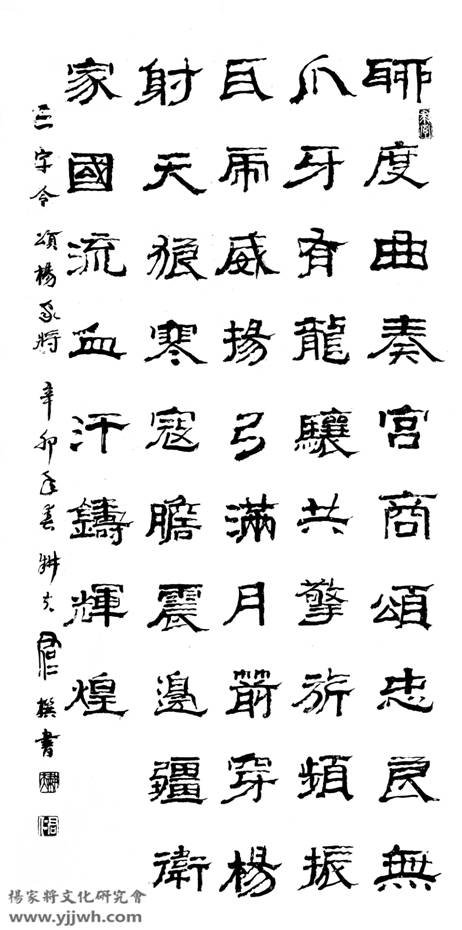 聊度曲奏宮商頌忠良無
爪牙有龍驤共擎旂頻振
虎威揚弓滿月箭穿楊
射天狼寒寇膽震邊疆衛
家國流血汗鑄輝煌
三字令 頌楊家將 辛卯年春 耕夫 撰書
楊家將文化研究會
www.yjjwh.com